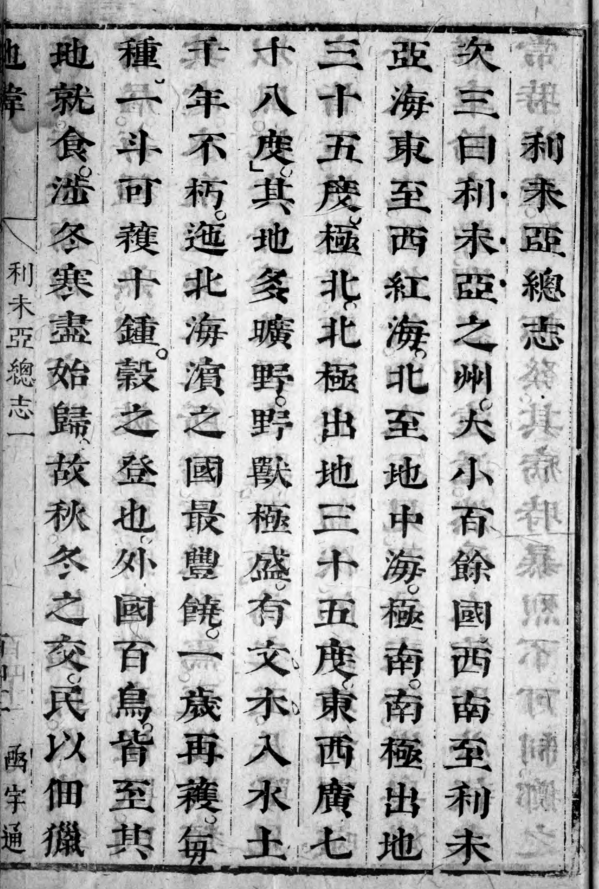 利未亞總志
次三曰利未亞之州。大小百餘國西南至利未
亞海東至西紅海。北至地中海。極南。南極出地
三十五度。極北。北極出地三十五度。東西廣七
十八度。其地多曠野。野獸極盛。有文木。入水土
千年不朽。迤北海濱之國最豐饒。一歲再穫。每
種一斗可穫十鍾。穀之登也。外國百鳥。皆至其
地就食。涉冬寒盡始歸。故秋冬之交。民以佃獵
地緯
利未亞總志一
函宇通